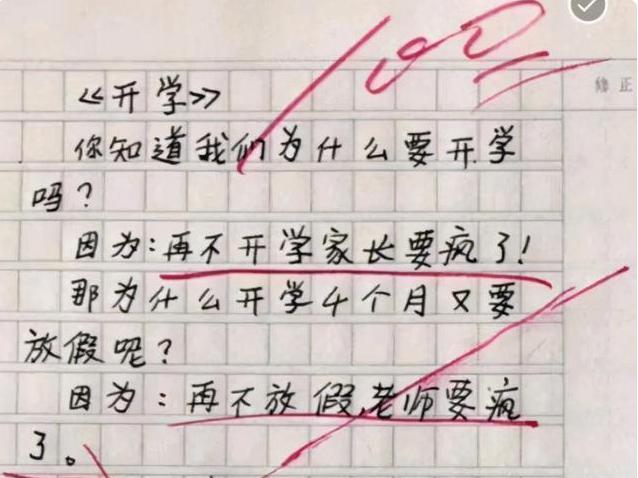 100
修正
《开学》
你知道我们为什么要开学
吗？
因为：再不开学家长要疯了！
那为什么开学4个月又要
放假呢？
因为：再不放假,老师要疯
了。